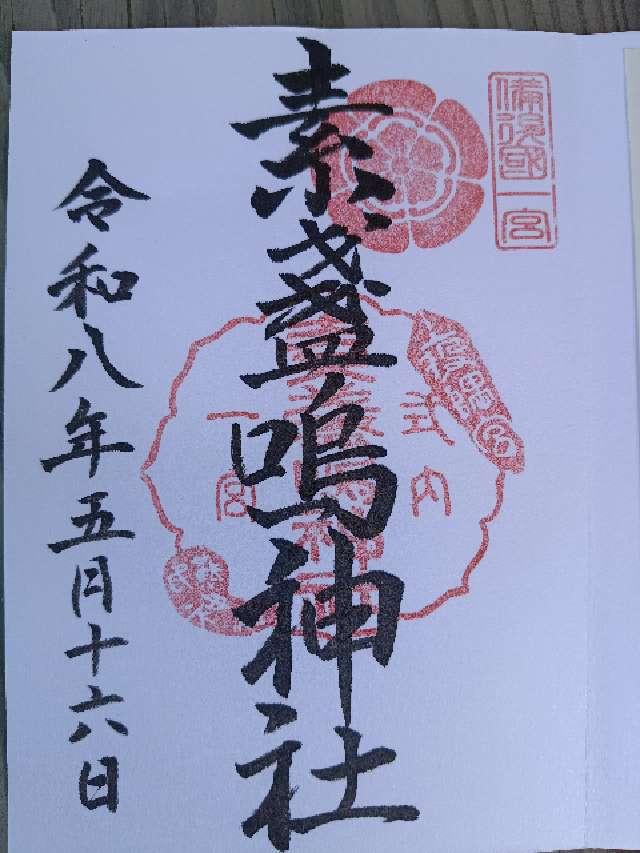 備後國一宮
素盞嗚神社
式内
一宮
令和八年五月十六日